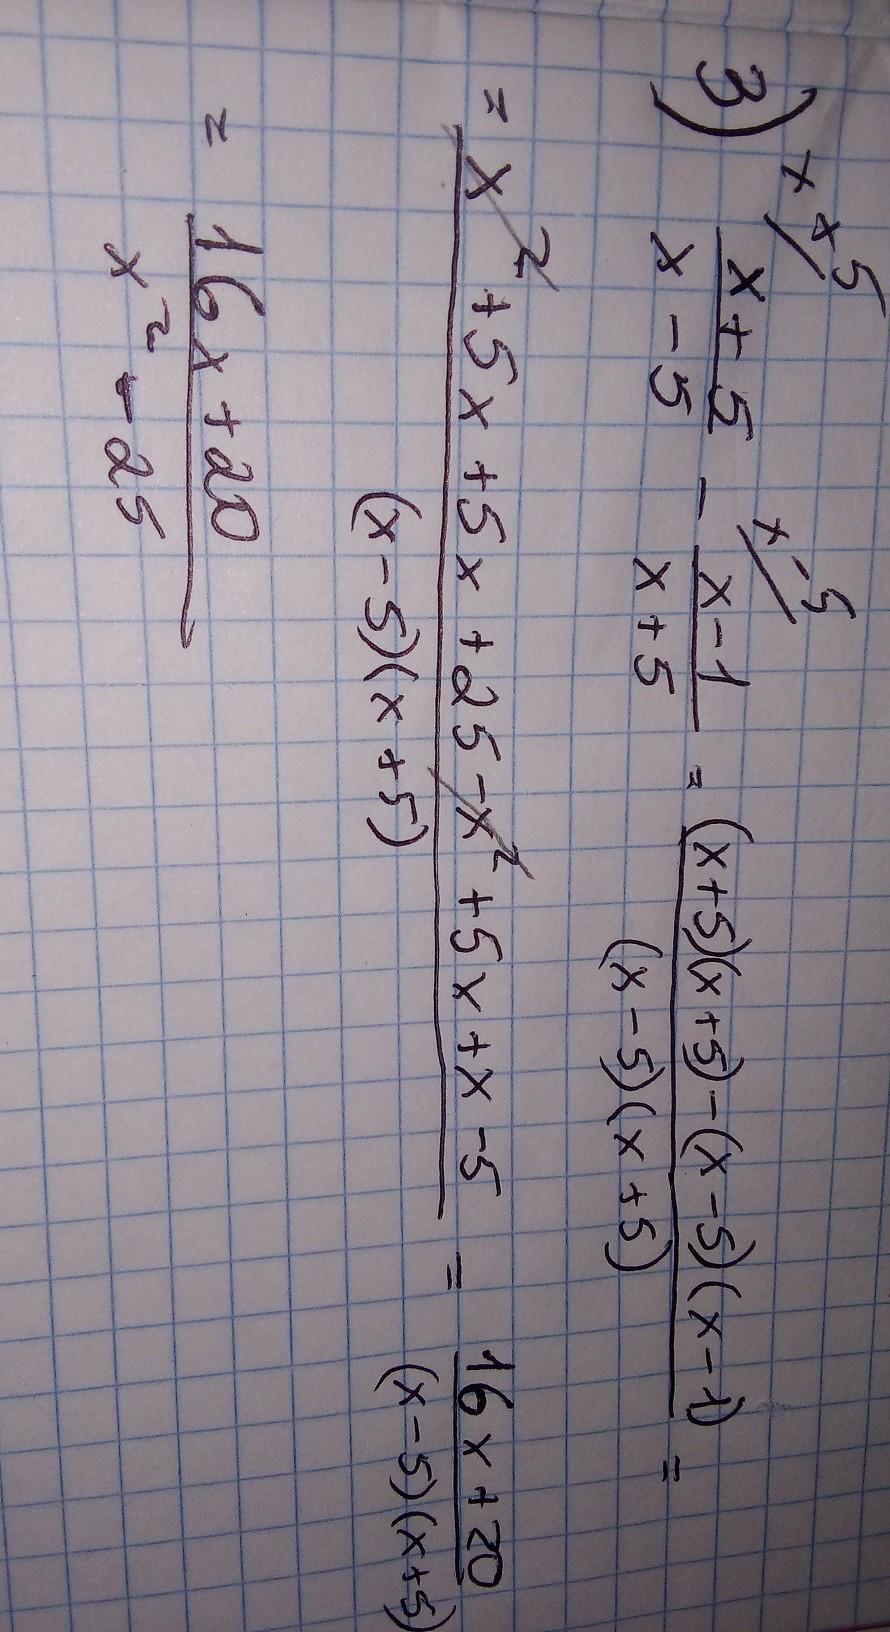 3) x+5/ (x+5)/(x-5) - x-5/ (x-1)/(x+5) = ((x+5)(x+5)-(x-5)(x-1))/((x-5)(x+5)) =
= (x²+5x+5x+25-x²+5x+x-5)/((x-5)(x+5)) = (16x+20)/((x-5)(x+5))
= (16x+20)/(x²-25)